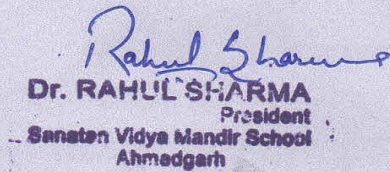 Rahul Sharma
Dr. RAHUL SHARMA
President
Sanatan Vidya Mandir School
Ahmedgarh